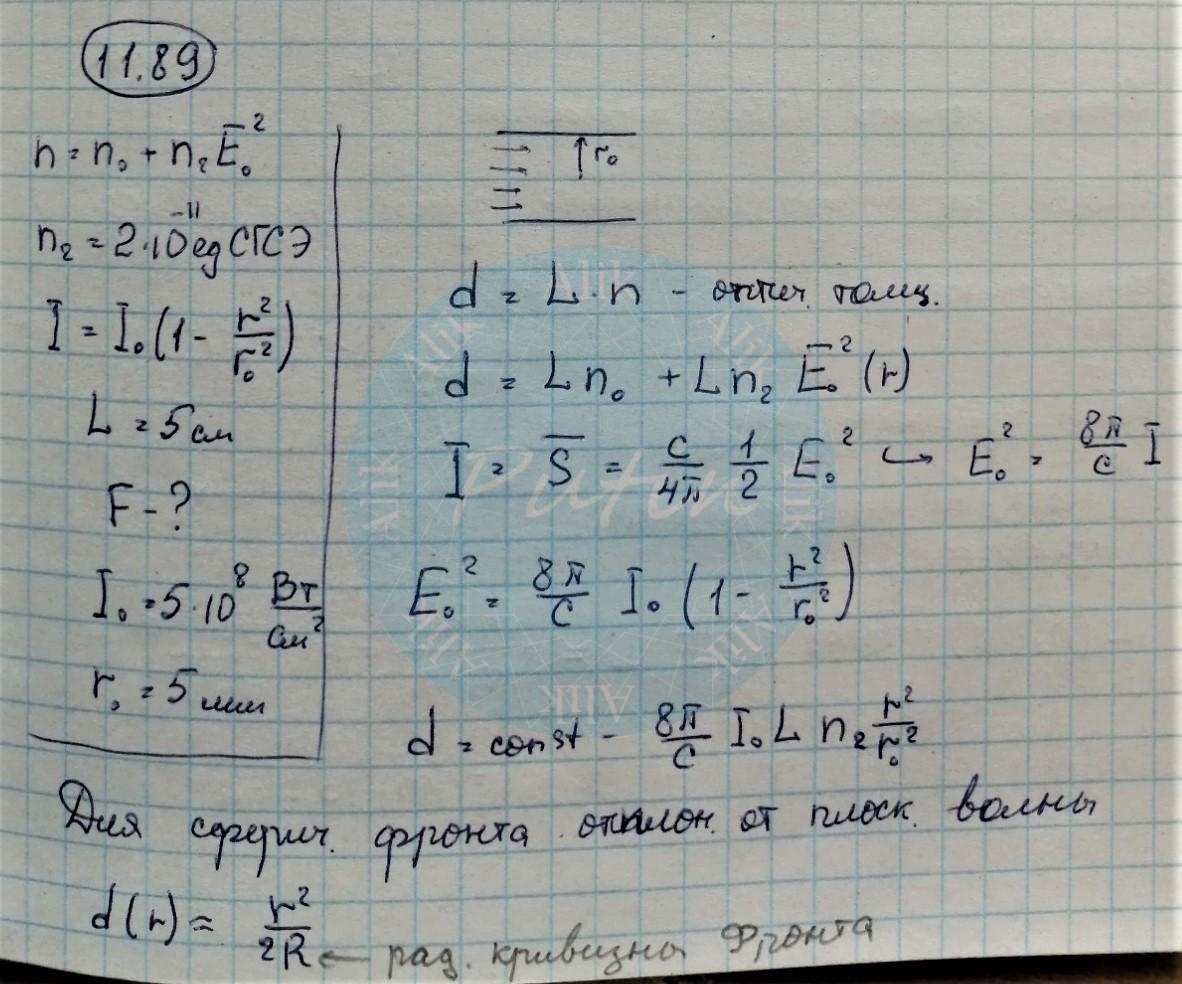 11.89
n = n₀ + n₂ E̅₀²
n₂ = 2·10⁻¹¹ ед СГСЭ
I = I₀ (1 - r²/r₀²)
L = 5 см
F - ?
I₀ = 5·10⁸ Вт/см²
r₀ = 5 мм
r₀
d = L·n - оптич. толщ.
d = L n₀ + L n₂ E̅₀² (r)
I = S̅ = c/4π 1/2 E₀² ↪ E₀² = 8π/c I
E₀² = 8π/c I₀ (1 - r²/r₀²)
d = const - 8π/c I₀ L n₂ r²/r₀²
Для сферич. фронта отклон. от плоск. волны
d(r) ≈ r²/2R ← рад. кривизны фронта
Alik
Alik
Alik
Alik
Alik
Alik
Alik
Alik
Putin